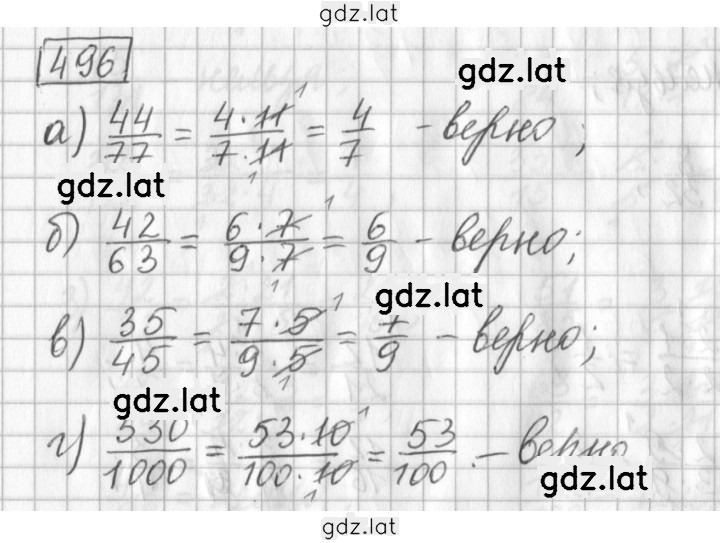 gdz.lat
496
gdz.lat
а) 44/77 = 4·11/7·11 = 4/7 - верно;
1
1
gdz.lat
б) 42/63 = 6·7/9·7 = 6/9 - верно;
1
1
gdz.lat
в) 35/45 = 7·5/9·5 = 7/9 - верно;
1
1
gdz.lat
г) 530/1000 = 53·10/100·10 = 53/100 - верно
1
1
gdz.lat
gdz.lat